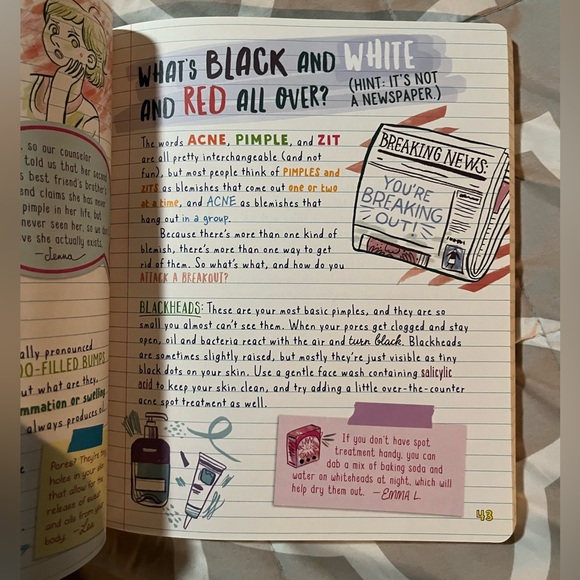 so our counselor
told us that her second
best friend's brother's
end claims she has never
pimple in her life, but
never seen her, so we don't
ve she actually exists.
—Jenna
ally pronounced
OO-FILLED BUMPS.
ut what are they,
mmation or swelling.
always produces a
Pores? They're tiny
holes in your skin
that allow for the
release of sweat
and oils from your
body.
WHAT'S BLACK AND WHITE
AND RED ALL OVER?
(HINT: IT'S NOT
A NEWSPAPER.)
The words ACNE, PIMPLE, and ZIT
are all pretty interchangeable (and not
fun), but most people think of PIMPLES and
ZITS as blemishes that come out one or two
at a time, and ACNE as blemishes that
hang out in a group.
Because there's more than one kind of
blemish, there's more than one way to get
rid of them. So what's what, and how do you
ATTACK A BREAKOUT?
BREAKING NEWS:
YOU'RE
BREAKING
OUT!
BLACKHEADS: These are your most basic pimples, and they are so
small you almost can't see them. When your pores get clogged and stay
open, oil and bacteria react with the air and turn black. Blackheads
are sometimes slightly raised, but mostly they're just visible as tiny
black dots on your skin. Use a gentle face wash containing salicylic
acid to keep your skin clean, and try adding a little over-the-counter
acne spot treatment as well.
If you don't have spot
treatment handy, you can
dab a mix of baking soda and
water on whiteheads at night, which will
help dry them out. —EMMA L.
43